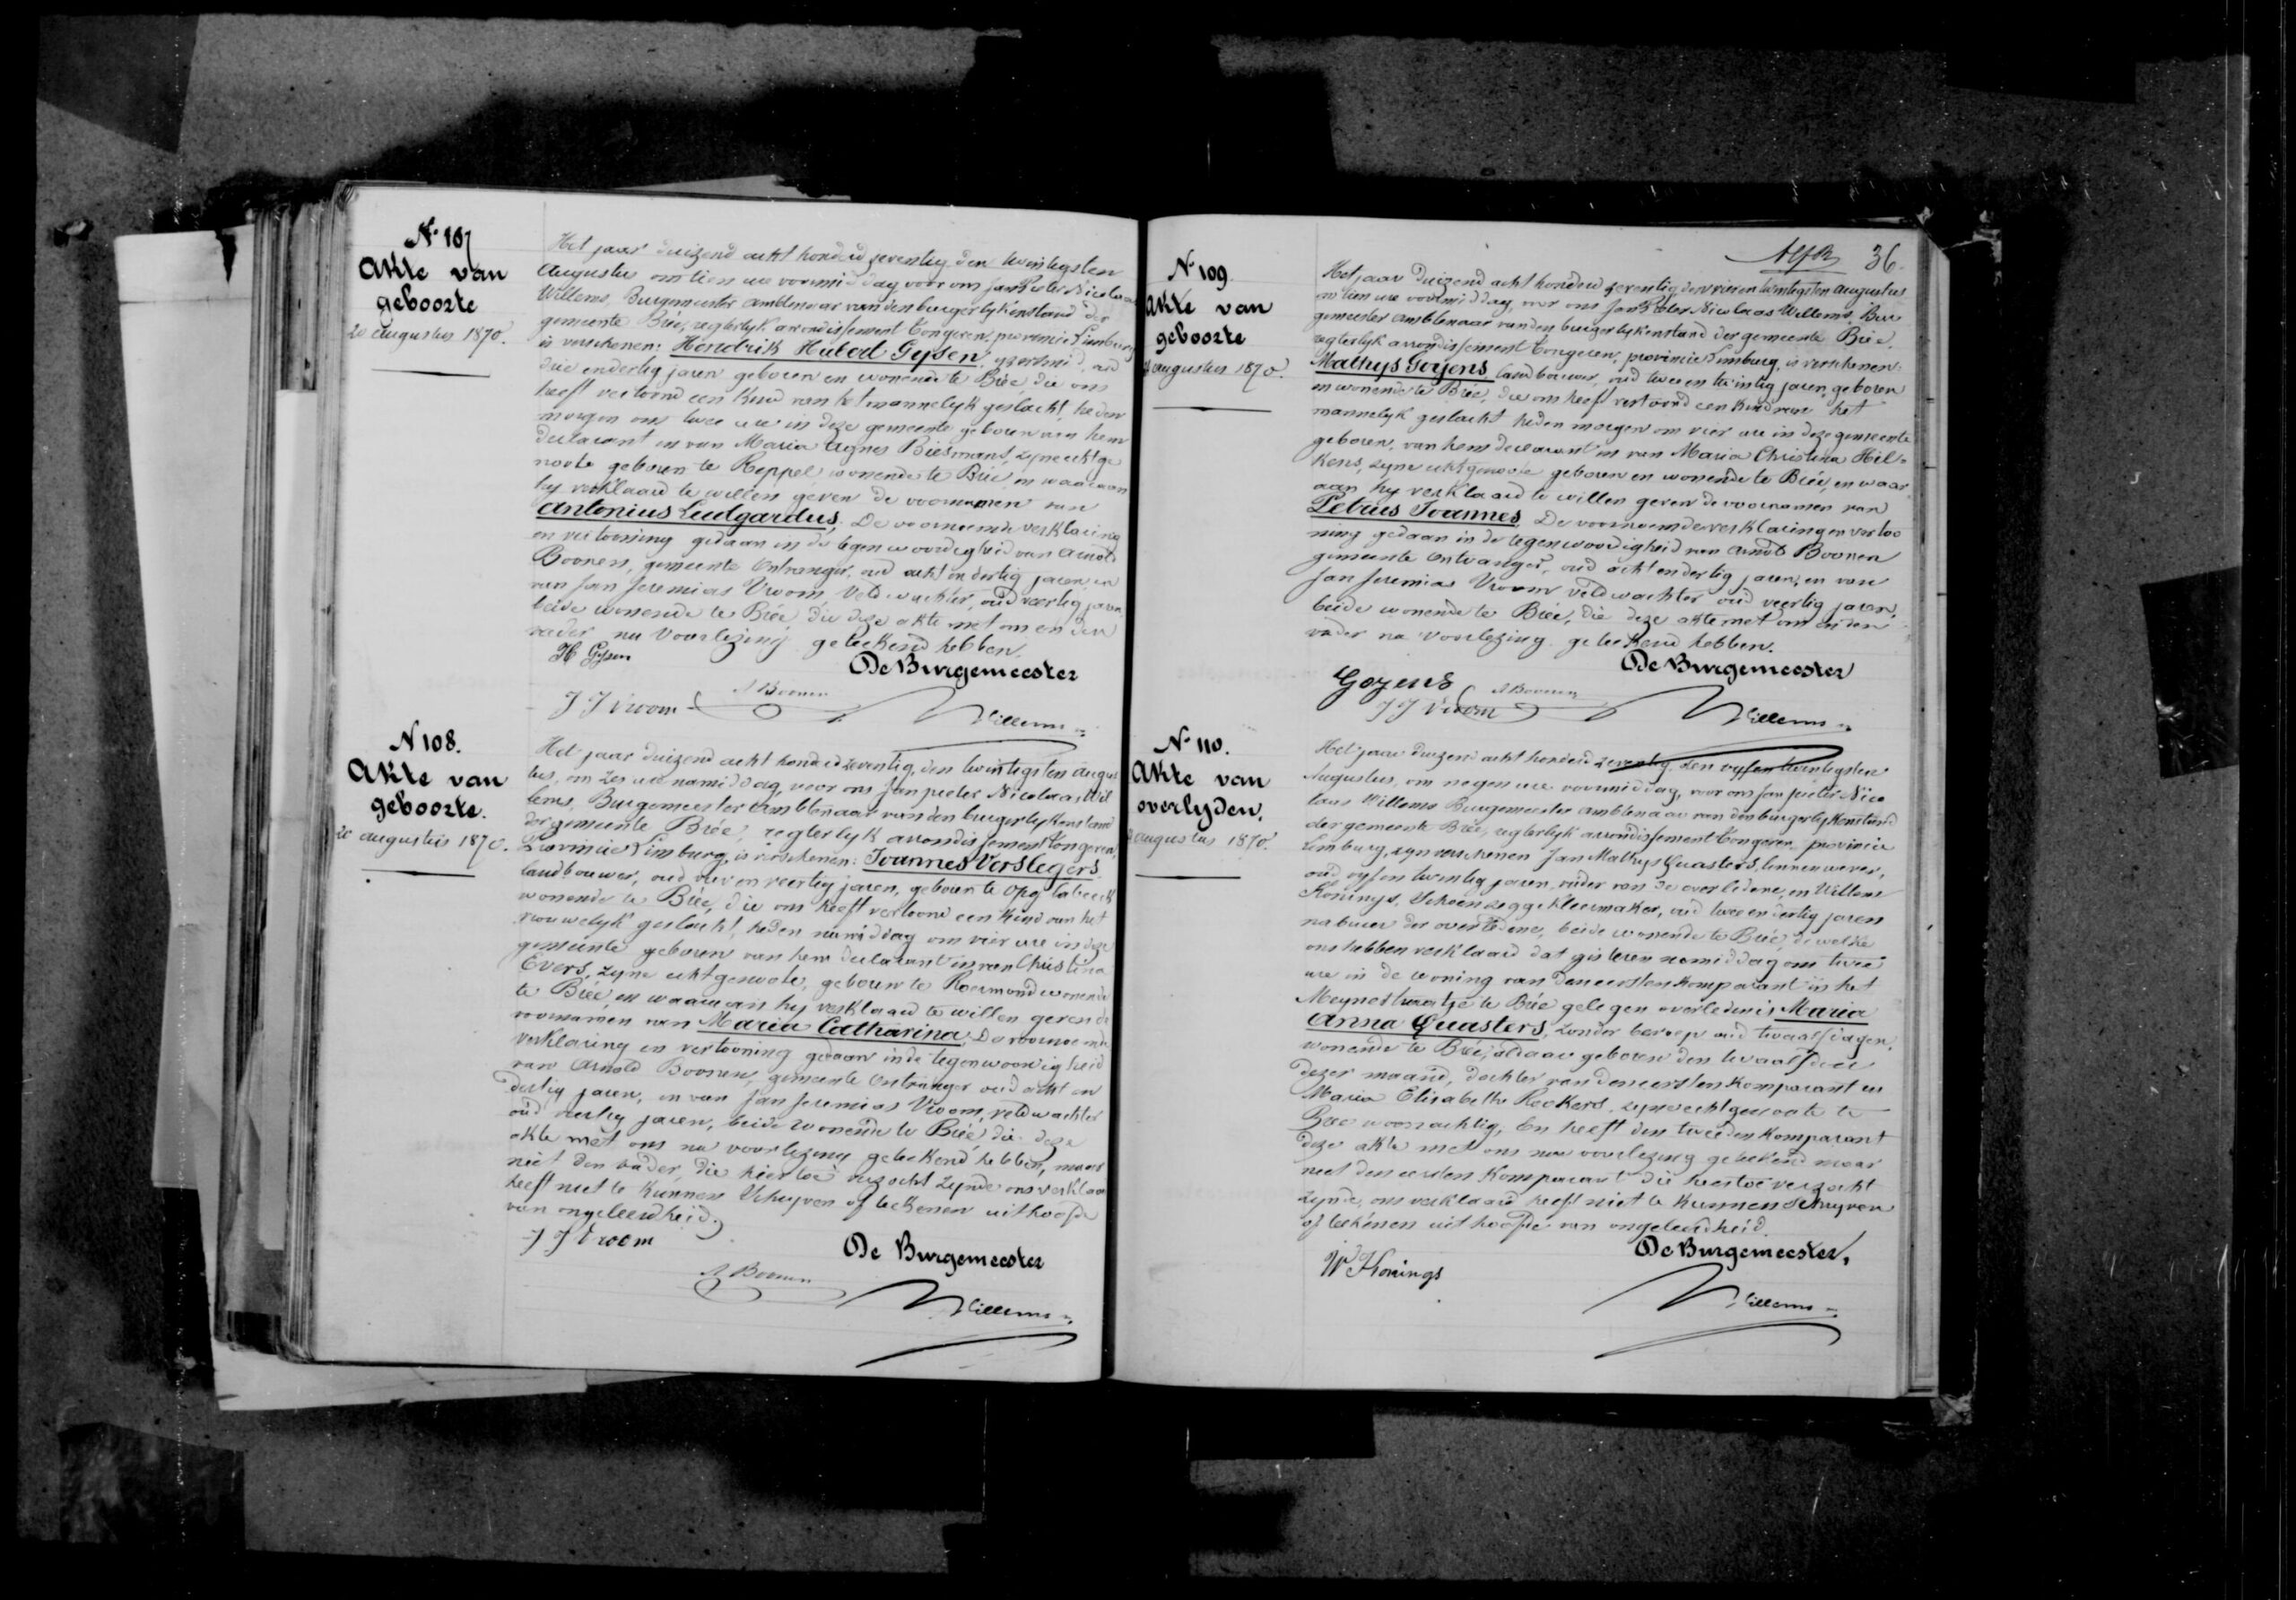 N.º 107
Akte van
geboorte
20 augustus 1870.
Het jaar duizend acht honderd zeventig den twintigsten
Augustus om tien ure voormiddag voor ons Jan Pieter Nicolaas
Willems, Burgemeester Ambtenaar van den burgerlyken stand der
gemeente Brée, regterlyk arrondissement Tongeren, provincie Limburg
is verschenen: Hendrik Hubert Gysen, yzersmid, oud
drie en dertig jaren geboren en wonende te Brée, die ons
heeft vertoond een kind van het mannelyk geslacht, heden
morgen om twee ure in deze gemeente geboren van hem
declarant en van Maria Agnes Biesmans, zyne echtge
noote geboren te Reppel, wonende te Brée, en waaraan
hy verklaard te willen geven de voornamen van
Antonius Ludgardus. De voornoemde verklaring
en vertooning gedaan in de tegenwoordigheid van Arnold
Boonen, gemeente Ontvanger, oud acht en dertig jaren en
van Jan Jeremias Vroom, Veldwachter, oud veertig jaren
beide wonende te Brée, die deze akte met ons en den
vader na voorlezing geteekend hebben.
H Gysen
De Burgemeester
J J Vroom
A Boonen
Willems
N 108.
Akte van
geboorte.
20 augustus 1870.
Het jaar duizend acht honderd zeventig, den twintigsten Augus
tus, om zes ure namiddag, voor ons Jan pieter Nicolaas Wil
lems, Burgemeester Ambtenaar van den burgerlyken stand
der gemeente Brée, regterlyk arrondissement Tongeren,
Provincie Limburg, is verschenen: Joannes Verslegers
landbouwer, oud en veertig jaren, geboren te Opglabeeck
wonende te Brée, die ons heeft vertoond een kind van het
vrouwelyk geslacht, heden namiddag om vier ure in deze
gemeente geboren van hem declarant en van Christina
Evers, zyne echtgenoote, geboren te Roermond wonende
te Brée en waaraan hy verklaard te willen geven de
voornamen van Maria Catharina. De voornoemde
verklaring en vertooning gedaan in de tegenwoordigheid
van Arnold Boonen, gemeente Ontvanger oud acht en
dertig jaren, en van Jan Jeremias Vroom, veldwachter
oud veertig jaren, beide wonende te Brée, die deze
akte met ons na voorlezing geteekend hebben, maar
niet den vader, die hiertoe verzocht zynde ons verklaard
heeft niet te kunnen Schryven of teekenen uithoofde
van ongeleerdheid.
J J Vroom
De Burgemeester
A Boonen
Willems
36.
N.º 109.
Akte van
geboorte
augustus 1870.
Het jaar duizend acht honderd zeventig den vier en twintigsten Augustus
om tien ure voormiddag, voor ons Jan Pieter Nicolaas Willems, Bur
gemeester Ambtenaar van den burgerlykenstand der gemeente Brée.
regterlyk arrondissement Tongeren, provincie Limburg, is verschenen:
Mathys Goyens, landbouwer, oud twee en twintig jaren, geboren
en wonende te Brée, die ons heeft vertoond een kind van het
mannelyk geslacht heden morgen om vier ure in deze gemeente
geboren, van hem declarant en van Maria Christina Hil-
kens, zyne echtgenoote geboren en wonende te Brée, en waar
aan hy verklaard te willen geven de voornamen van
Petrus Joannes. De voornoemde verklaring en vertoo
ning gedaan in de tegenwoordigheid van Arnold Boonen
gemeente Ontvanger, oud acht en dertig jaren, en van
Jan Jeremias Vroom veldwachter oud veertig jaren,
beide wonende te Brée, die deze akte met ons en den
vader na voorlezing geteekend hebben.
De Burgemeester
Goyens
A Boonen
J J Vroom
Willems
N.º 110.
Akte van
overlyden.
augustus 1870.
Het jaar duizend acht honderd zeventig, den vyf en twintigsten
Augustus, om negen ure voormiddag, voor ons Jan pieter Nico
laas Willems Burgemeester Ambtenaar van den burgerlykenstand
der gemeente Brée, regterlyk arrondissement Tongeren provincie
Limburg, zyn verschenen Jan Mathys Quasters, linnenwever,
oud vyf en twintig jaren, vader van de overledene, en Willem
Konings, kleermaker, oud twee en dertig jaren
nabuur der overledene, beide wonende te Brée, de welke
ons hebben verklaard dat gisteren namiddag om twee
ure in de woning van den eersten komparant in het
te Brée gelegen overleden is Maria
Anna Quasters, zonder beroep oud twaalf dagen,
wonende te Brée, aldaar geboren den twaalfden
dezer maand, dochter van den eersten komparant en
Maria Elisabeth Keckers, zyne echtgenoote te
Brée woonachtig; En heeft den tweeden komparant
deze akte met ons na voorlezing geteekend maar
niet den eersten komparant die hiertoe verzocht
zynde, ons verklaard heeft niet te kunnen Schryven
of teekenen uit hoofde van ongeleerdheid.
De Burgemeester,
W Konings
Willems